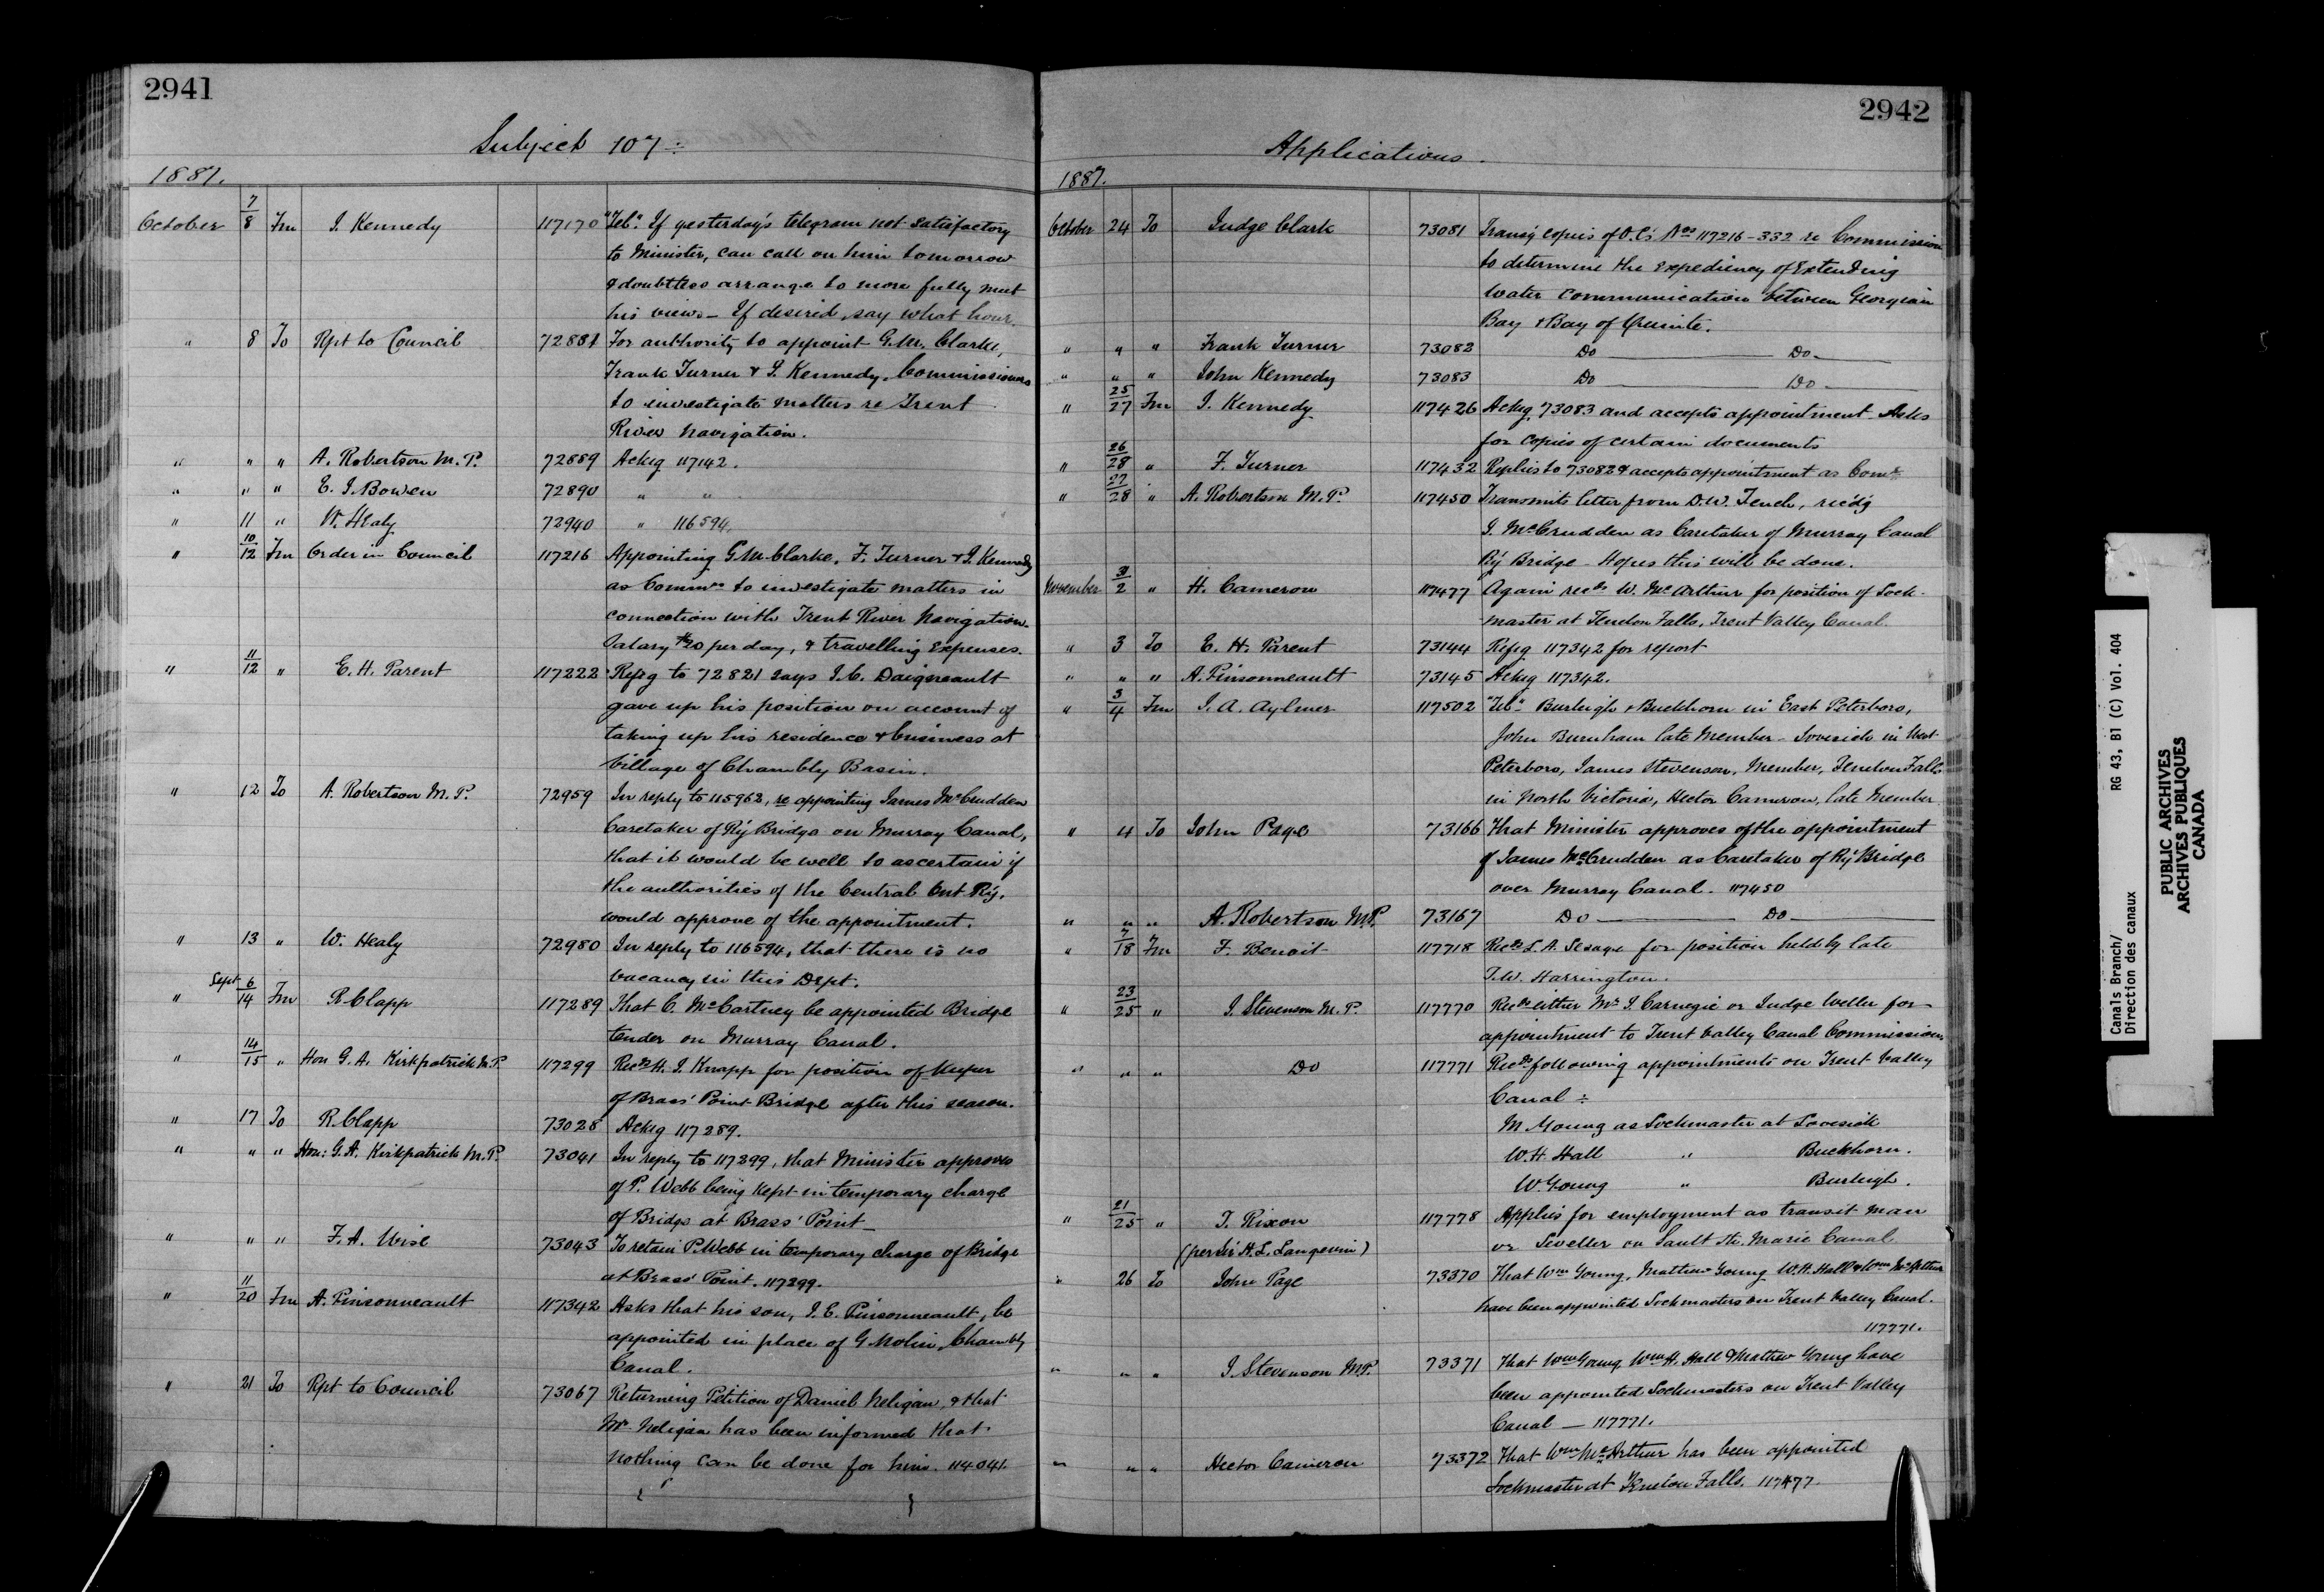 2941
Subject 107 :
1887.
October 7/8 Fm J. Kennedy 117170 "Tel". If yesterday's telegram not satisfactory
to Minister, can call on him tomorrow
& doubtless arrange to more fully meet
his views – If desired, say what hour.
" 8 To Rpt to Council 72881 For authority to appoint G.M. Clarke,
Frank Turner & J. Kennedy, Commissioners
to investigate matters re Trent
River Navigation.
" " " A. Robertson M.P. 72889 Ackg 117142.
" " " E. J. Bowen 72890 " "
" 11 " W. Healy 72940 " 116594.
" 10/12 Fm Order in Council 117216 Appointing G.M. Clarke, F. Turner & J. Kennedy
as Commrs to investigate matters in
connection with Trent River Navigation.
Salary $20 per day, & travelling expenses.
" 11/12 " E. H. Parent 117222 Refg to 72821 says J.C. Daigneault
gave up his position on account of
taking up his residence & business at
Village of Chambly Basin.
" 12 To A. Robertson M.P. 72959 In reply to 115962, re appointing James McCrudden
Caretaker of Ry Bridge on Murray Canal,
that it would be well to ascertain if
the authorities of the Central Ont Ry.
would approve of the appointment.
" 13 " W. Healy 72980 In reply to 116594, that there is no
vacancy in this Dept.
" Sept 6/14 Fm R. Clapp 117289 That C. McCartney be appointed Bridge
tender on Murray Canal.
" 14/15 " Hon G. A. Kirkpatrick M.P. 117299 Recds H. J. Knapp for position of Keeper
of Brass' Point Bridge after this season.
" 17 To R. Clapp 73028 Ackg 117289.
" " " Hon: G. A. Kirkpatrick M.P. 73041 In reply to 117299, that Minister approves
of P. Webb being kept in temporary charge
of Bridge at Brass' Point –
" " " F. A. Wise 73043 To retain P. Webb in temporary charge of Bridge
at Brass' Point. 117299.
" 11/20 Fm A. Pinsonneault 117342 Asks that his son, J. E. Pinsonneault, be
appointed in place of G. Molin, Chambly
Canal.
" 21 To Rpt to Council 73067 Returning Petition of Daniel Neligan, & that
Mr Neligan has been informed that
nothing can be done for him. 114041.
2942
Applications.
1887.
October 24 To Judge Clark 73081 Transg copies of O.C's Nos 117216-332 re Commission
to determine the expediency of Extending
water communication between Georgian
Bay & Bay of Quinte.
" " " Frank Turner 73082 Do — Do —
" " " John Kennedy 73083 Do — Do —
" 25/27 Fm J. Kennedy 117426 Ackg 73083 and accepts appointment Asks
for copies of certain documents
" 26/28 " F. Turner 117432 Replies to 73082 & accepts appointment as Comr
" 27/28 " A. Robertson M.P. 117450 Transmits letter from D.W. , recd'g
J. McCrudden as Caretaker of Murray Canal
Ry Bridge – Hopes this will be done.
November 31/2 " H. Cameron 117477 Again recds W. McArthur for position of Lock-
master at Fenelon Falls, Trent Valley Canal.
" 3 To E. H. Parent 73144 Refg 117342 for report
" " " A. Pinsonneault 73145 Ackg 117342.
" 3/4 Fm J. A. Aylmer 117502 "Tel" Burleigh & Buckhorn in East Peterboro,
John Burnham late Member – Lovesick in West
Peterboro, James Stevenson, Member, Fenelon Falls
in North Victoria, Hector Cameron, late Member
" 4 To John Page 73166 That Minister approves of the appointment
of James McCrudden as Caretaker of Ry Bridge
over Murray Canal. 117450
" " " A. Robertson M.P. 73167 Do — Do —
" 7/18 Fm F. Benoit 117718 Recds L. A. Lesage for position held by late
T.W. Harrington.
" 23/25 " J. Stevenson M.P. 117770 Recds either Mr J. Carnegie or Judge Weller for
appointment to Trent Valley Canal Commission.
" " " Do 117771 Recds following appointments on Trent Valley
Canal :
M Young as Lockmaster at Lovesick
W.H. Hall " Buckhorn.
W. Young " Burleigh.
" 21/25 " T. Rixon 117778 Applies for employment as transit man
(per Sir H. L. Langevin) or Leveller on Sault Ste. Marie Canal
" 26 To John Page 73370 That Wm Young, Matthew Young W.H. Hall & Wm McArthur
have been appointed Lockmasters on Trent Valley Canal.
117771.
" " " J. Stevenson M.P. 73371 That Wm Young, Wm H. Hall & Mathew Young have
been appointed Lockmasters on Trent Valley
Canal — 117771.
" " " Hector Cameron 73372 That Wm McArthur has been appointed
Lockmaster at Fenelon Falls. 117477.
Canals Branch/ RG 43, B1 (C) Vol. 404
Direction des canaux
PUBLIC ARCHIVES
ARCHIVES PUBLIQUES
CANADA